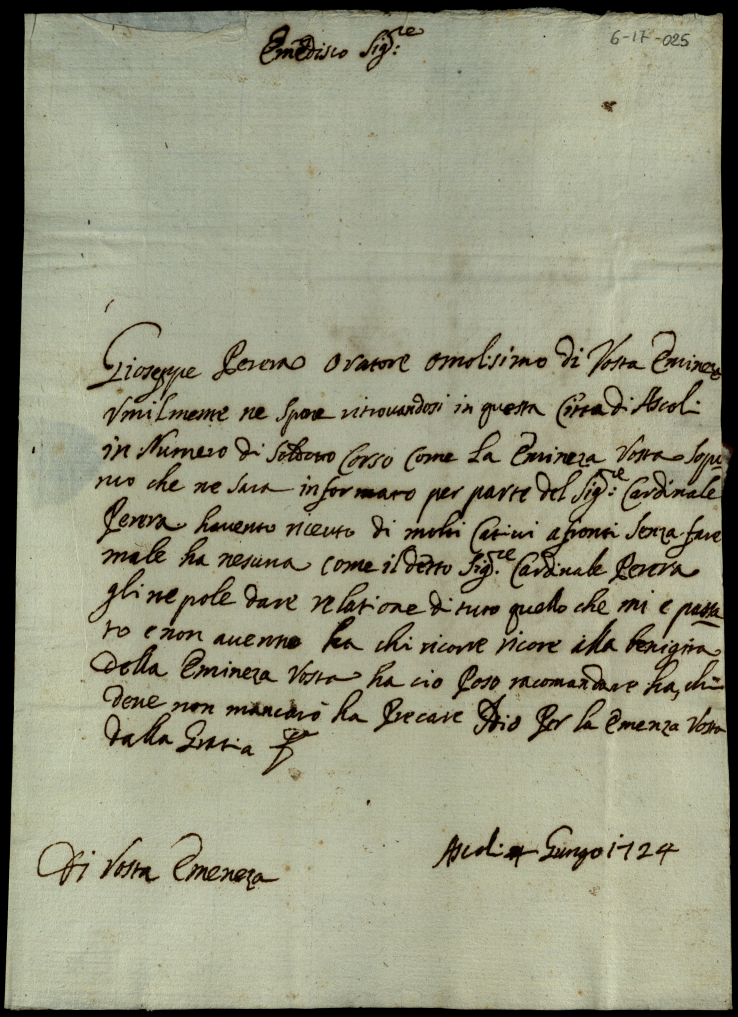 6-17-025
Emedisco Sig.re
Gioseppe Perera Oratore omolisimo di Vosta Emineza
Vmilmente ne Spone ritrovandosi in questa Citta di Ascoli
in Numero di Soldato Corso Come La Emineza Vosta
mo che ne Sara informato per parte del Sig.re Cardinale
Perera havento riceuto di molti Cativi afronti Senza fare
male ha nesuna come il detto Sig.re Cardinale Perera
gli ne pole dare relatione di tuto quello che mi e passa
to e non avenno ha chi ricorre ricore alla benigita
della Emineza Vosta ha cio Poso racomandare ha chi
deve non mancarò ha Precare Idio Per la Emenza Vosta
dalla Gratia
Di Vosta Emeneza
Ascoli 4 Gungo 1724